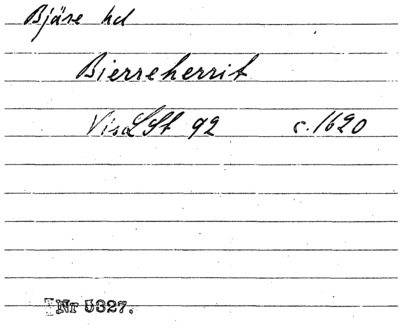 Bjäre hd
Bierreherrit
VisLSt 92 c. 1620
Nr 5327.